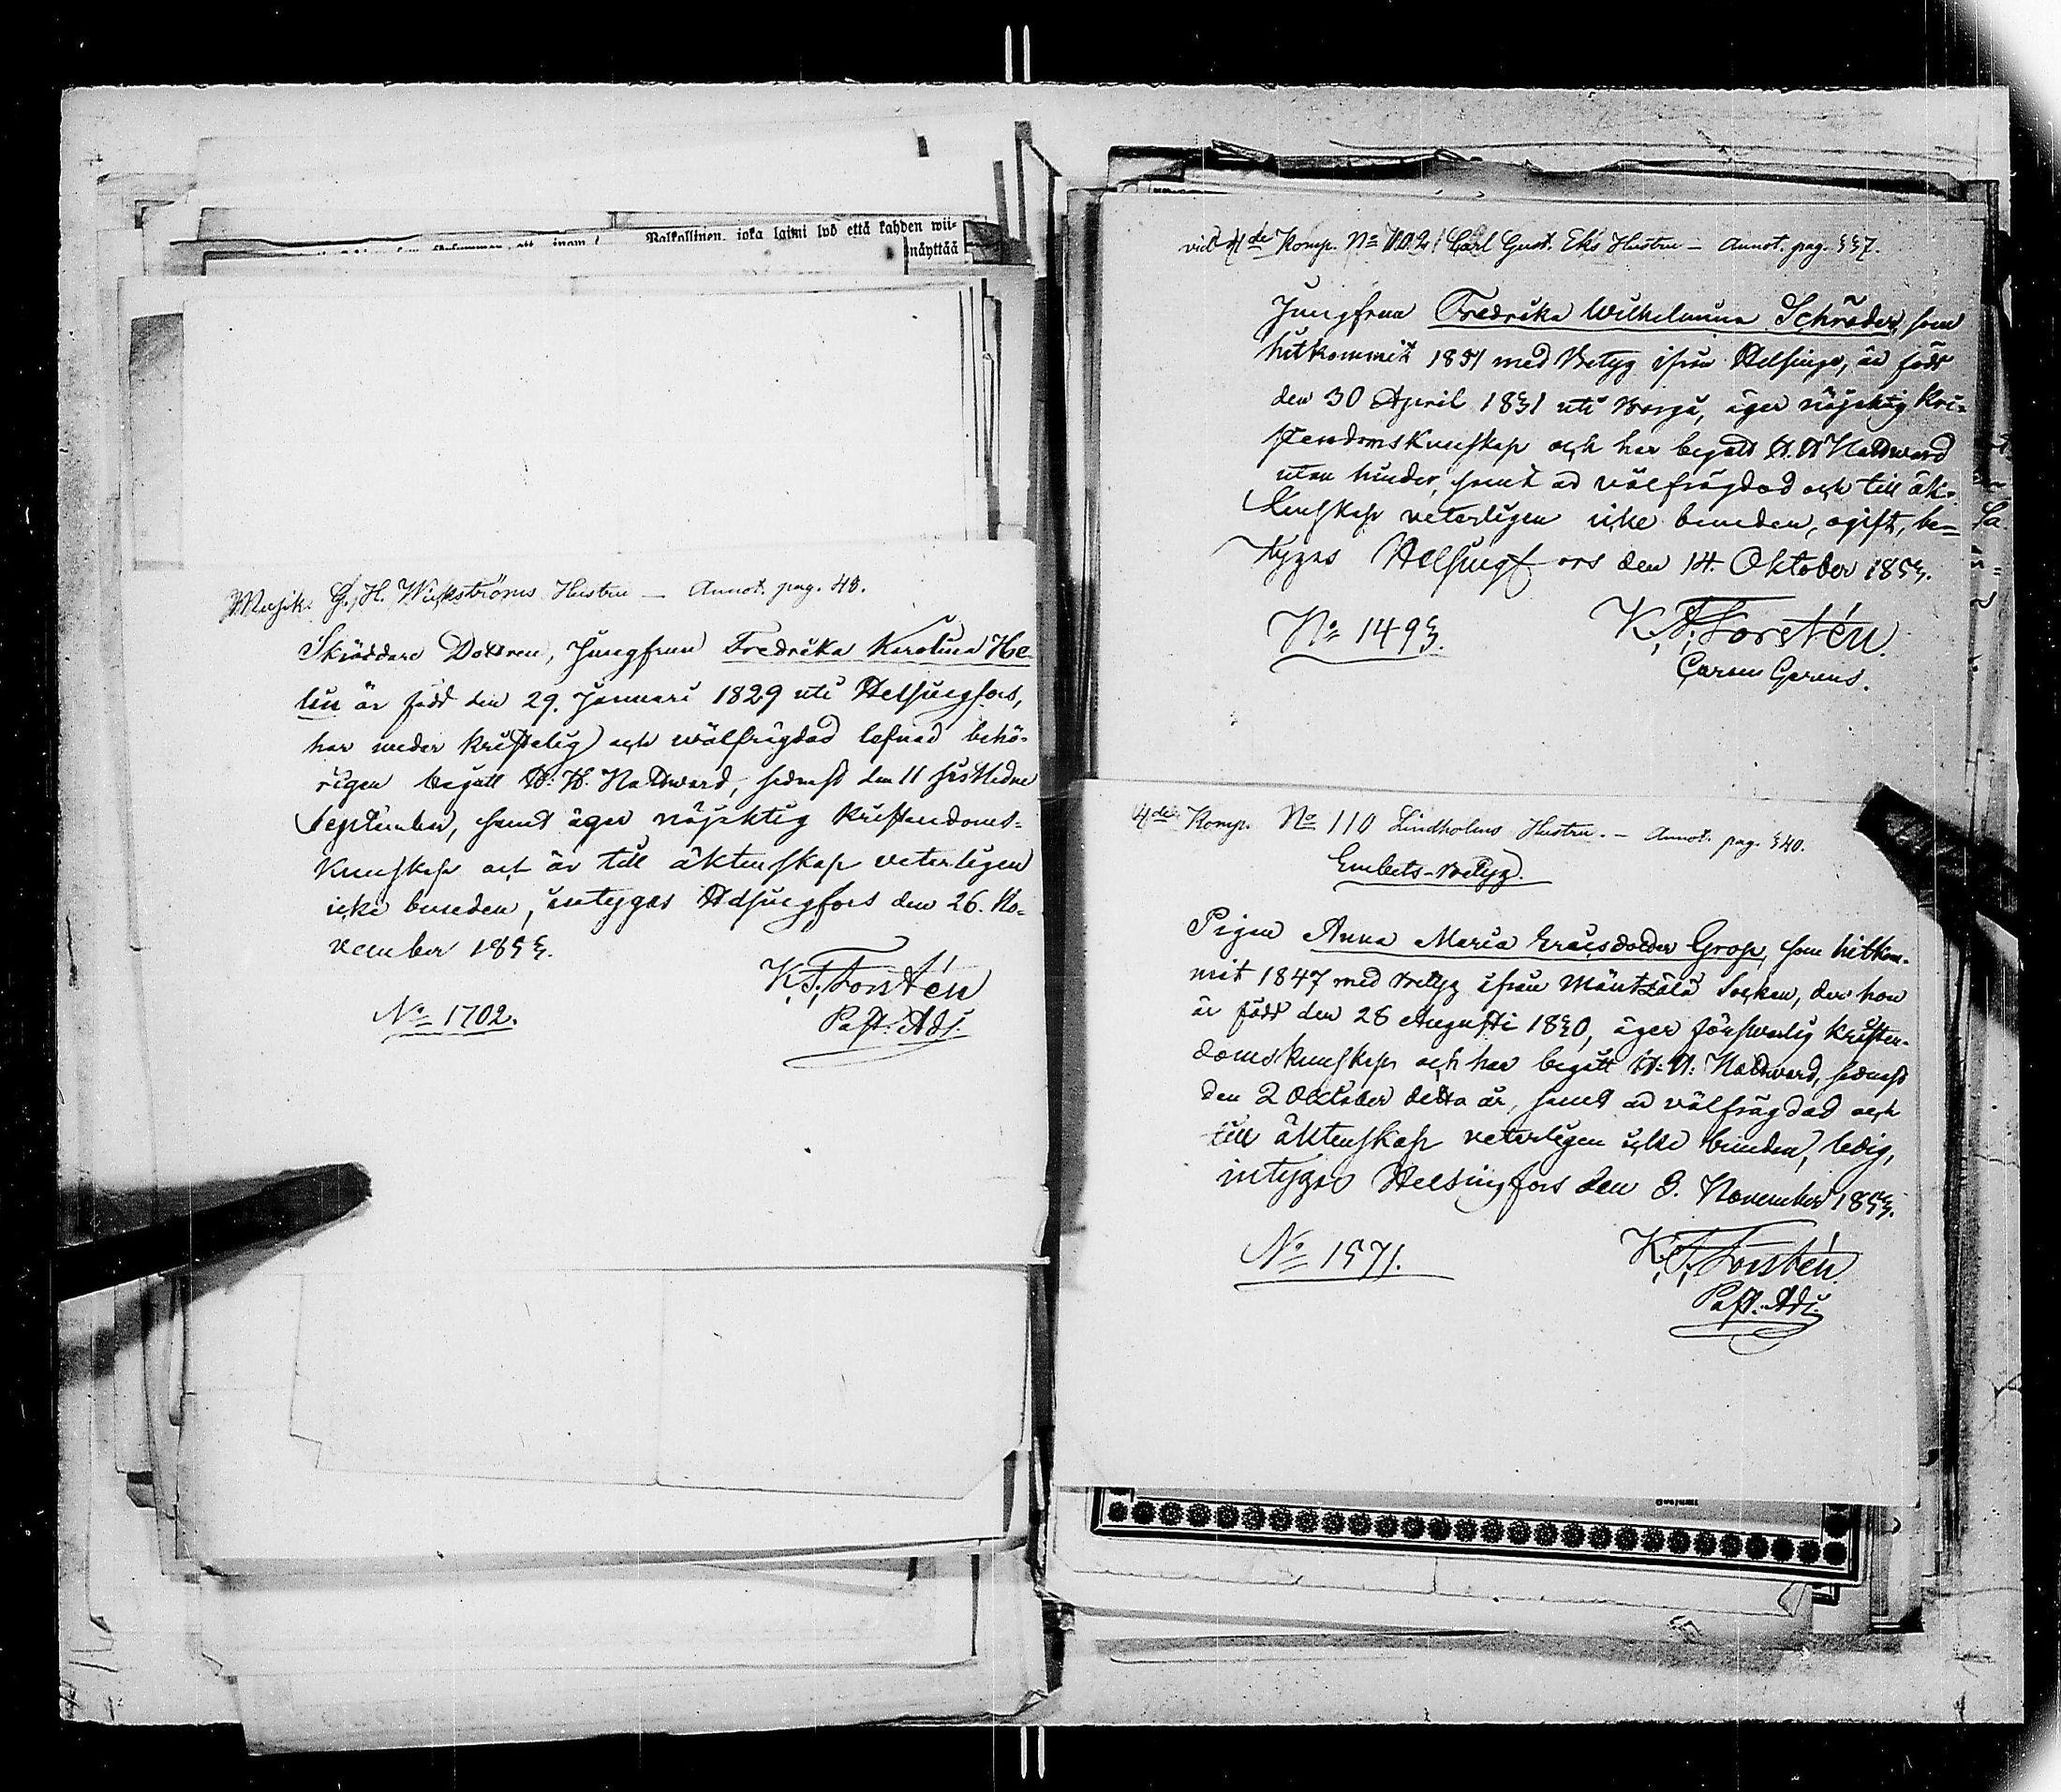 Palkollinen, joka laimi lyö että kahden wii-
näyttää
Musik. G. H. Wickströms Hustru — Annot. pag. 43.
Skräddare Dottren, Jungfrun Fredrika Karolina He-
lin är född den 29. Januari 1829 uti Helsingfors,
har under kristelig och wälfrägdad lefnad behö-
rigen begått H. H. Nattward, sednast den 11 sistledne
September, samt äger nöjaktig kristendoms-
kunskap och är till äktenskap veterligen
icke bunden, intygas Helsingfors den 26. No-
vember 1855.
K. F. Forstén
Past. Adj.
No 1702.
vid 4de Komp. No 102 Carl Gust. Eks Hustru — Annot. pag. 557.
Jungfrun Fredrika Wilhelmina Schröder, som
hitkommit 1851 med Betyg ifrån Helsinge, är född
den 30 April 1831 uti Borgå, äger nöjaktig Kri-
stendomskunskap och har begått H. H. Nattward
utan hinder, samt är välfrägdad och till äk-
tenskap veterligen icke bunden, ogift, be-
tygas Helsingfors den 14. Oktober 1855.
No 1495.
K. F. Forstén
Curam Gerens.
4de Komp. No 110 Lindholms Hustru. — Annot. pag. 540.
Embets-Betyg.
Pigan Anna Maria Ericsdotter Grop, som hitkom-
mit 1847 med Betyg ifrån Mäntzälä Socken, der hon
är född den 28 Augusti 1830, äger försvarlig kristen-
domskunskap och har begått H. H. Nattward, sednast
den 2 Oktober detta år, samt är välfrägdad och
till äktenskap veterligen icke bunden, ledig,
intygas Helsingfors den 3. November 1855.
No 1571.
K. F. Forstén
Past. Adj.